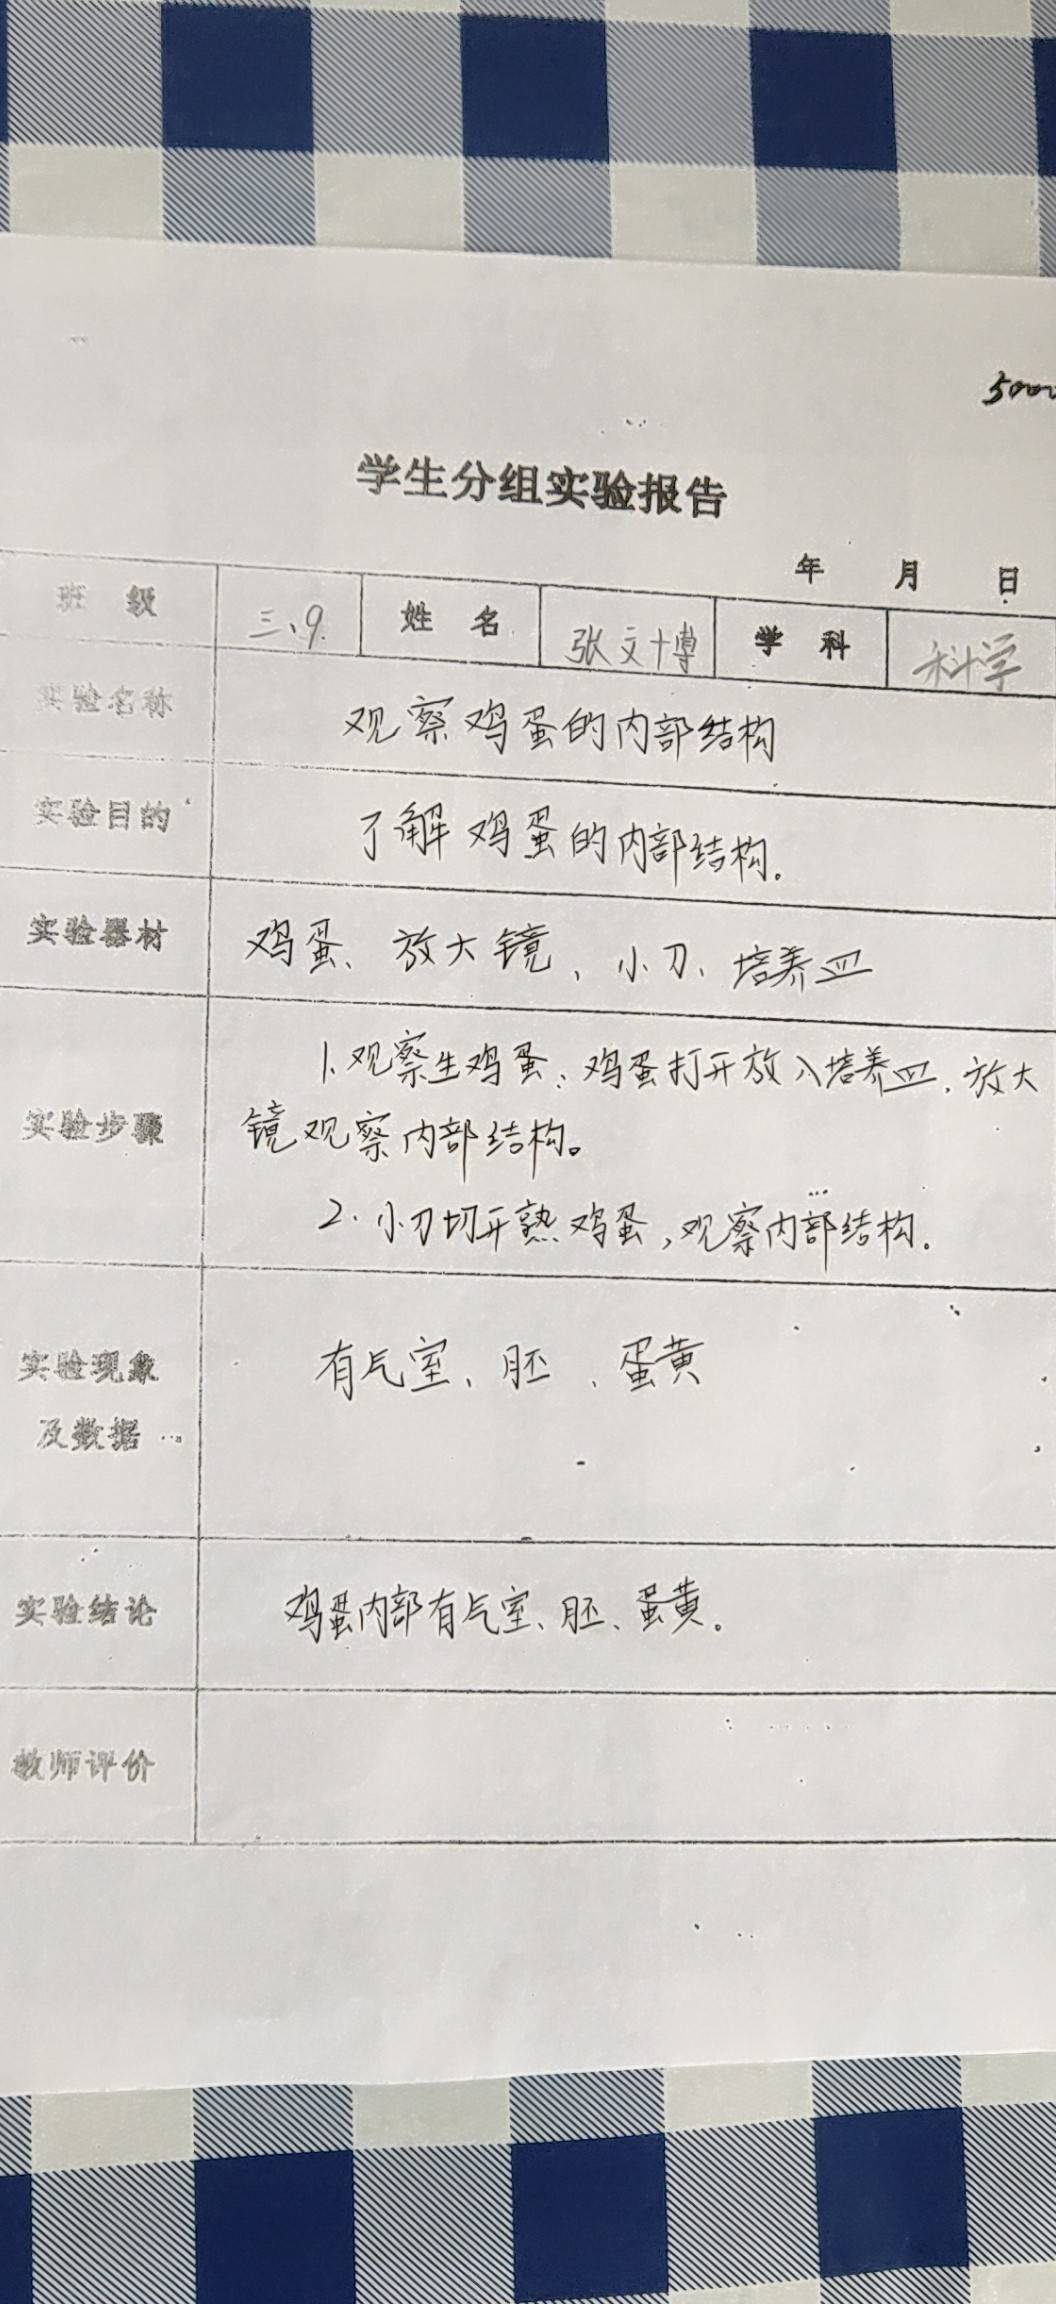 5000
学生分组实验报告
年 月 日
班 级 三、9. 姓 名 张文博 学 科 科学
实验名称 观察鸡蛋的内部结构
实验目的 了解鸡蛋的内部结构.
实验器材 鸡蛋、放大镜、小刀、培养皿
实验步骤
1.观察生鸡蛋:鸡蛋打开放入培养皿,放大
镜观察内部结构。
2.小刀切开熟鸡蛋,观察内部结构.
实验现象
及数据
有气室、胚、蛋黄
实验结论 鸡蛋内部有气室、胚、蛋黄。
教师评价